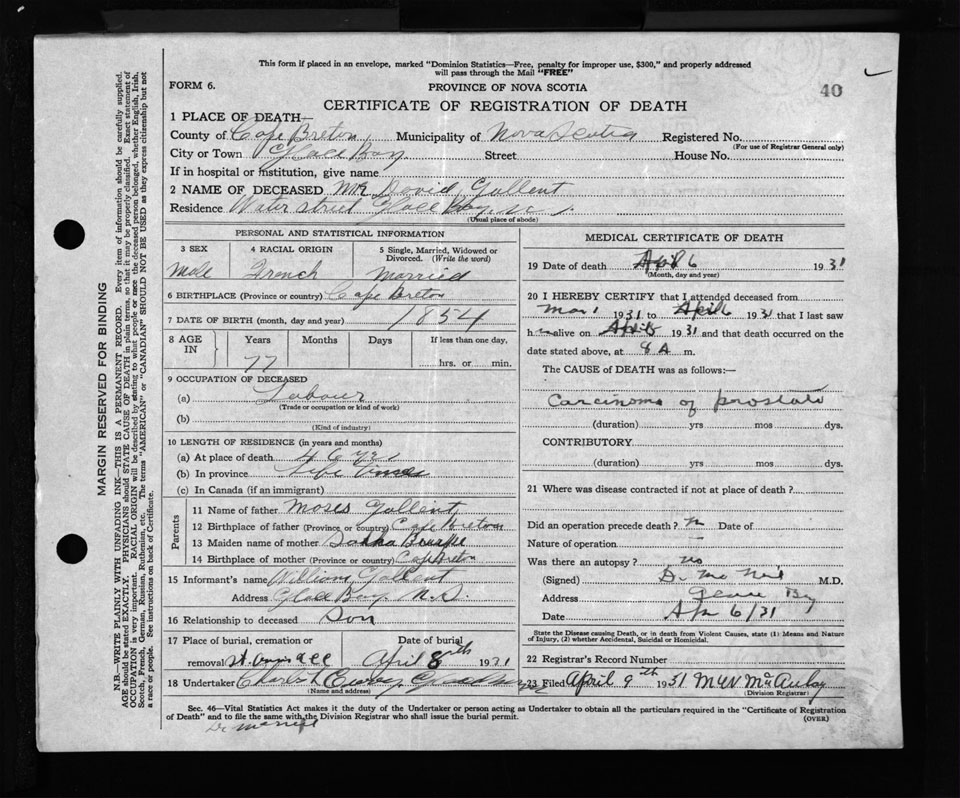 This form if placed in an envelope, marked "Dominion Statistics—Free, penalty for improper use, $300," and properly addressed
will pass through the Mail "FREE"
FORM 6.
PROVINCE OF NOVA SCOTIA
40
CERTIFICATE OF REGISTRATION OF DEATH
1 PLACE OF DEATH—
County of Cape Breton Municipality of Nova Scotia Registered No.
(For use of Registrar General only)
City or Town Glace Bay Street House No.
If in hospital or institution, give name
2 NAME OF DECEASED Mr David Gallent
Residence Water street Glace Bay N.S.
(Usual place of abode)
PERSONAL AND STATISTICAL INFORMATION
3 SEX 4 RACIAL ORIGIN 5 Single, Married, Widowed or
Divorced. (Write the word)
Male French Married
6 BIRTHPLACE (Province or country) Cape Breton
7 DATE OF BIRTH (month, day and year) 1854
8 AGE IN Years Months Days If less than one day,
77 hrs. or min.
9 OCCUPATION OF DECEASED
(a) Labour
(Trade or occupation or kind of work)
(b)
(Kind of industry)
10 LENGTH OF RESIDENCE (in years and months)
(a) At place of death 46 yrs
(b) In province Life
(c) In Canada (if an immigrant)
Parents
11 Name of father Moses Gallent
12 Birthplace of father (Province or country) Cape Breton
13 Maiden name of mother
14 Birthplace of mother (Province or country) Cape Breton
15 Informant's name William Gallent
Address Glace Bay N.S.
16 Relationship to deceased Son
17 Place of burial, cremation or Date of burial
removal April 8th 1931
18 Undertaker Charles
(Name and address)
MEDICAL CERTIFICATE OF DEATH
19 Date of death Apl 6 1931
(Month, day and year)
20 I HEREBY CERTIFY that I attended deceased from
Mar 1 1931 to April 6 1931 that I last saw
h alive on April 1931 and that death occurred on the
date stated above, at 8 A m.
The CAUSE of DEATH was as follows:—
Carcinoma of prostate
(duration) yrs mos dys.
CONTRIBUTORY
(duration) yrs mos dys.
21 Where was disease contracted if not at place of death?
Did an operation precede death? n Date of
Nature of operation —
Was there an autopsy? no
(Signed) D. McNeil M.D.
Address Glace Bay
Date Apr 6/31
State the Disease causing Death, or in death from Violent Causes, state (1) Means and Nature
of Injury, (2) whether Accidental, Suicidal or Homicidal.
22 Registrar's Record Number
23 Filed April 9th 1931 McAulay
(Division Registrar)
Sec. 46—Vital Statistics Act makes it the duty of the Undertaker or person acting as Undertaker to obtain all the particulars required in the "Certificate of Registration
of Death" and to file the same with the Division Registrar who shall issue the burial permit.
(OVER)
MARGIN RESERVED FOR BINDING
N.B.—WRITE PLAINLY WITH UNFADING INK—THIS IS A PERMANENT RECORD. Every item of information should be carefully supplied.
AGE should be stated EXACTLY. PHYSICIANS should STATE CAUSE OF DEATH in plain terms, so that it may be properly classified. Exact statement of
OCCUPATION is very important. RACIAL ORIGIN will be described by stating to what people or race the deceased person belonged, whether English, Irish,
Scotch, French, German, Russian, Ruthenian, etc. The terms "AMERICAN" or "CANADIAN" SHOULD NOT BE USED as they express citizenship but not
a race or people. See instructions on back of Certificate.